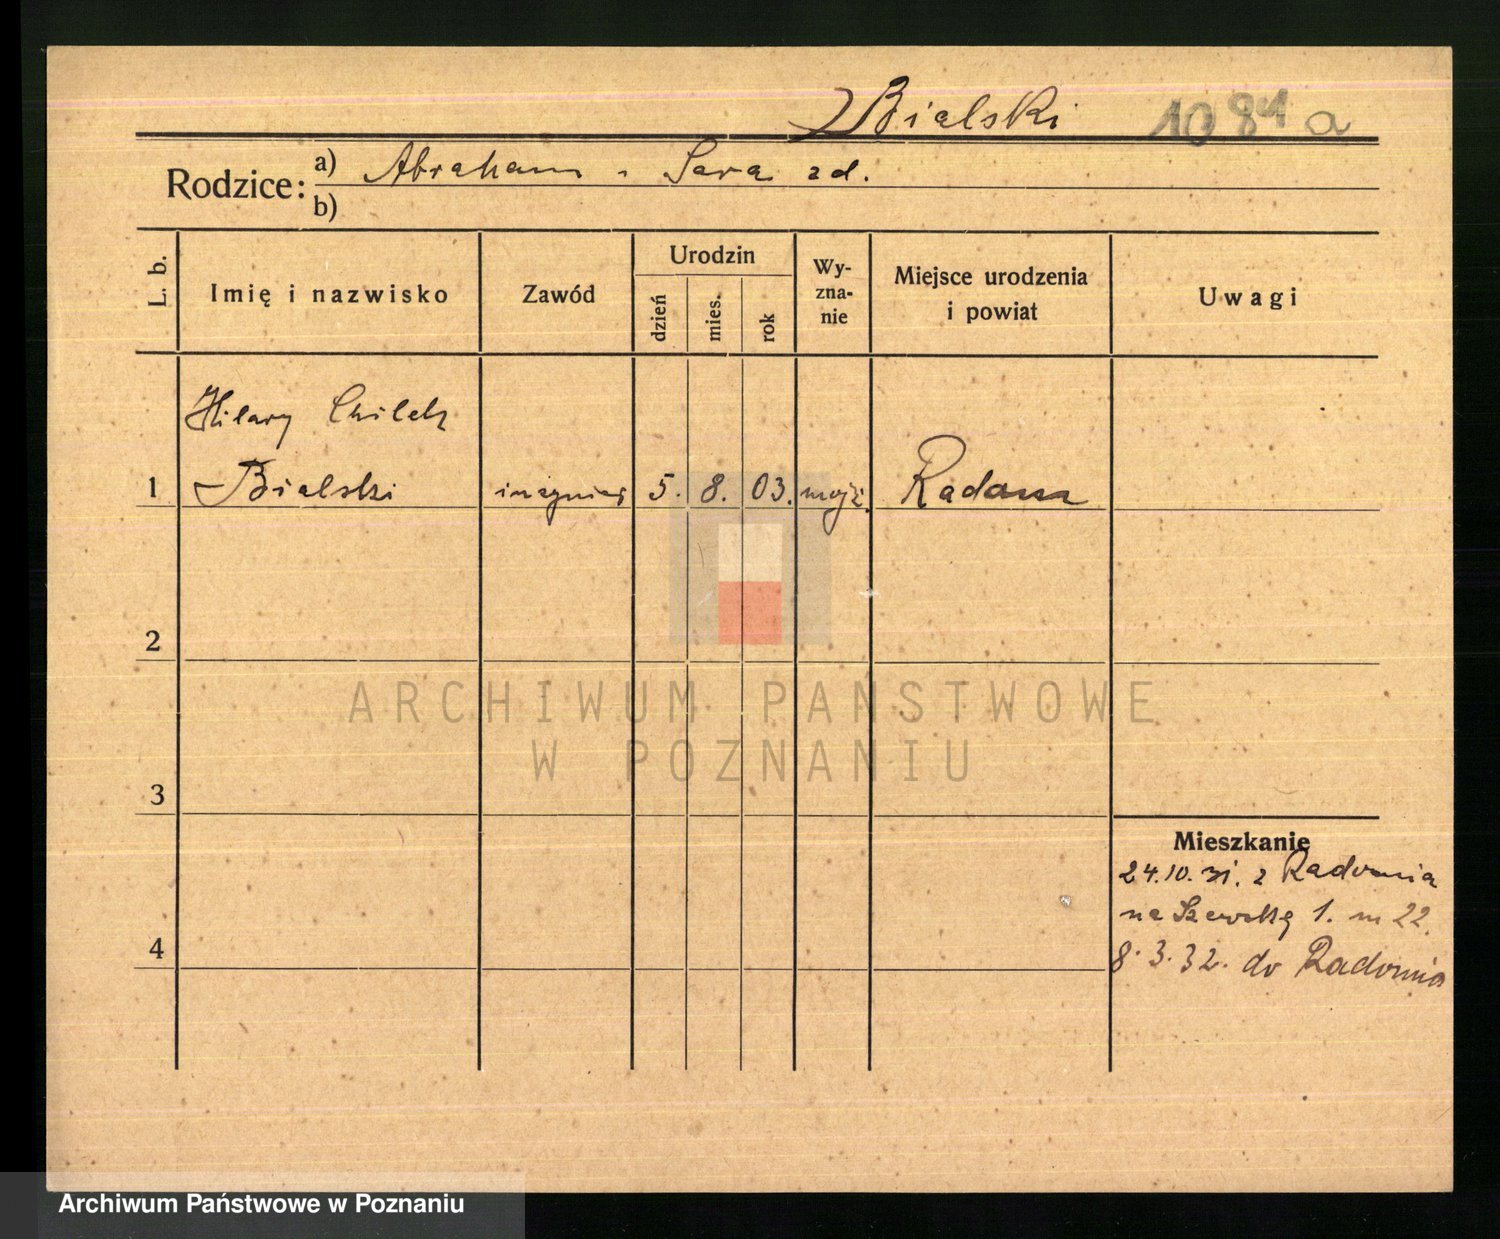 Bielski 1081 a
Rodzice: a) Abraham i Sara zd.
b)
L. b. Imię i nazwisko Zawód Urodzin dzień mies. rok Wy-zna-nie Miejsce urodzenia i powiat Uwagi
Hilary
1 Bielski inżynier 5. 8. 03. mojż. Radom
2
ARCHIWUM PAŃSTWOWE
W POZNANIU
3
Mieszkanie
24.10.31. z Radomia
na Szewską 1. m 22.
4
8.3.32. do Radomia
Archiwum Państwowe w Poznaniu